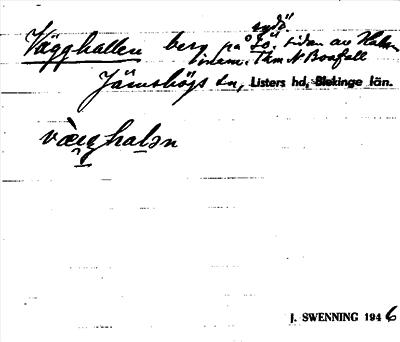 sydö
Vägghallen berg på "SÖ." sidan av Halen
innem. Thm N Boafall
Jämshögs sn, Listers hd, Blekinge län.
vàgghalən
J. SWENNING 1946